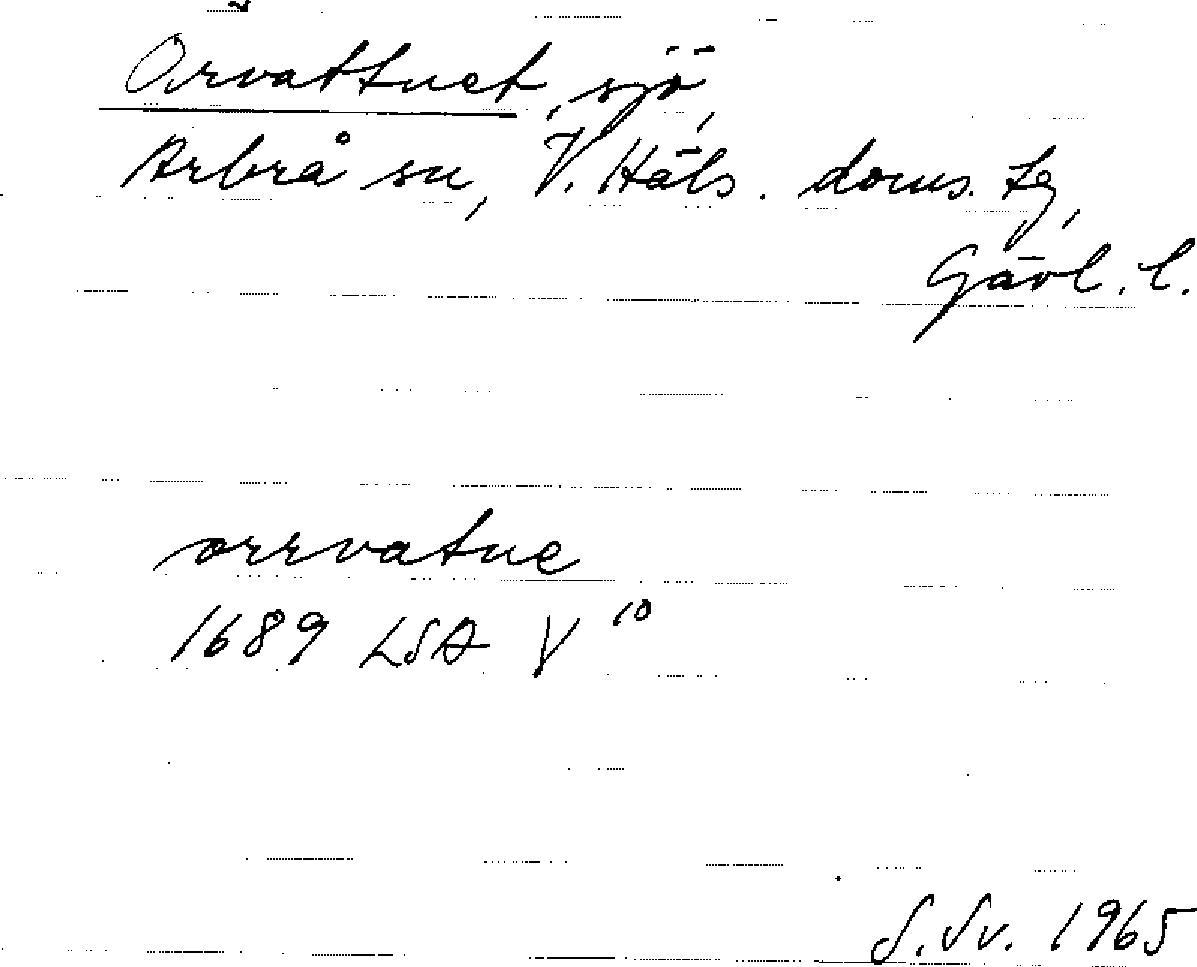 Orvattnet, sjö,
Arbrå sn, V. Häls. doms. tg,
Gävl. l.
orrvatne
1689 LSA V 10
S. Sv. 1965